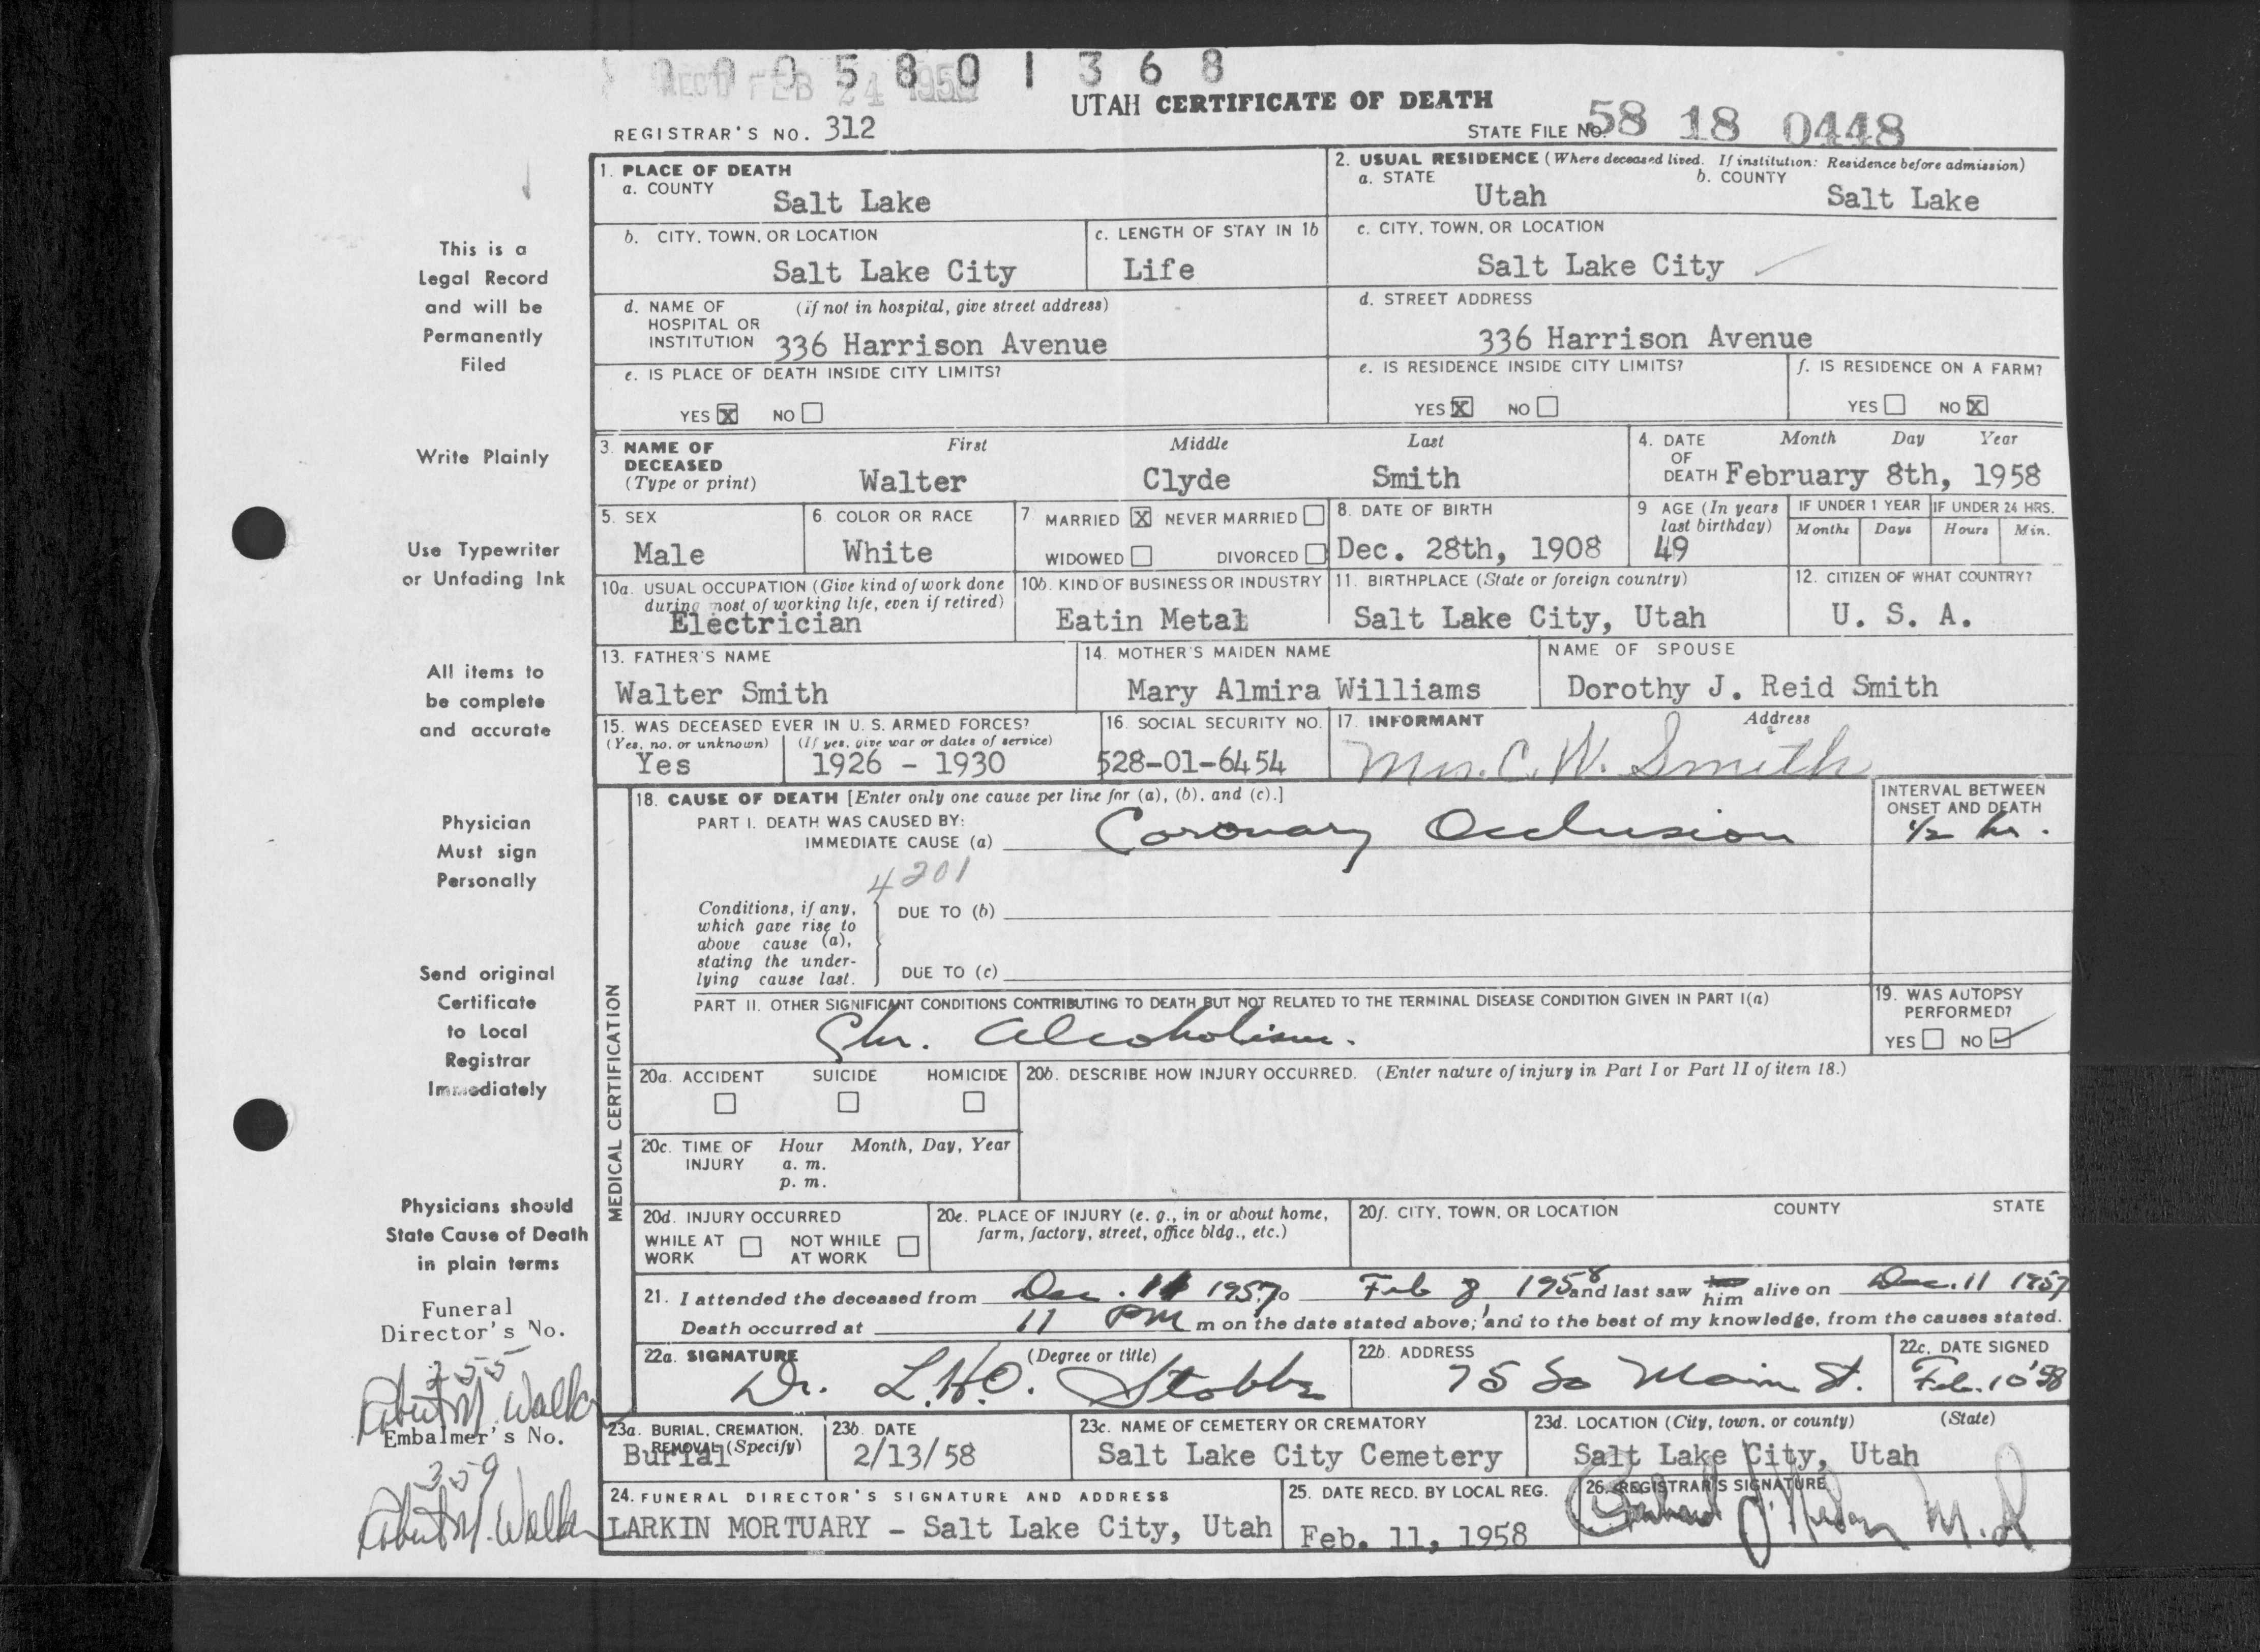 0005801368
REC'D FEB 24 1958
UTAH CERTIFICATE OF DEATH
REGISTRAR'S NO. 312
STATE FILE NO. 58 18 0448
This is a
Legal Record
and will be
Permanently
Filed
Write Plainly
Use Typewriter
or Unfading Ink
All items to
be complete
and accurate
Physician
Must sign
Personally
Send original
Certificate
to Local
Registrar
Immediately
Physicians should
State Cause of Death
in plain terms
Funeral
Director's No.
355
Walker
Embalmer's No.
359
Walker
1. PLACE OF DEATH
a. COUNTY
Salt Lake
2. USUAL RESIDENCE (Where deceased lived. If institution: Residence before admission)
a. STATE
Utah
b. COUNTY
Salt Lake
b. CITY, TOWN, OR LOCATION
Salt Lake City
c. LENGTH OF STAY IN 1b
Life
c. CITY, TOWN, OR LOCATION
Salt Lake City
d. NAME OF HOSPITAL OR INSTITUTION
(if not in hospital, give street address)
336 Harrison Avenue
d. STREET ADDRESS
336 Harrison Avenue
e. IS PLACE OF DEATH INSIDE CITY LIMITS?
YES X NO
e. IS RESIDENCE INSIDE CITY LIMITS?
YES X NO
f. IS RESIDENCE ON A FARM?
YES NO X
3. NAME OF DECEASED
(Type or print)
First Middle Last
Walter Clyde Smith
4. DATE OF DEATH
Month Day Year
February 8th, 1958
5. SEX
Male
6. COLOR OR RACE
White
7. MARRIED X NEVER MARRIED
WIDOWED DIVORCED
8. DATE OF BIRTH
Dec. 28th, 1908
9 AGE (In years last birthday)
49
IF UNDER 1 YEAR
Months Days
IF UNDER 24 HRS.
Hours Min.
10a. USUAL OCCUPATION (Give kind of work done
during most of working life, even if retired)
Electrician
10b. KIND OF BUSINESS OR INDUSTRY
Eatin Metal
11. BIRTHPLACE (State or foreign country)
Salt Lake City, Utah
12. CITIZEN OF WHAT COUNTRY?
U. S. A.
13. FATHER'S NAME
Walter Smith
14. MOTHER'S MAIDEN NAME
Mary Almira Williams
NAME OF SPOUSE
Dorothy J. Reid Smith
15. WAS DECEASED EVER IN U. S. ARMED FORCES?
(Yes, no, or unknown) (If yes, give war or dates of service)
Yes 1926 - 1930
16. SOCIAL SECURITY NO.
528-01-6454
17. INFORMANT Address
Mrs. C. W. Smith
MEDICAL CERTIFICATION
18. CAUSE OF DEATH [Enter only one cause per line for (a), (b), and (c).]
INTERVAL BETWEEN
ONSET AND DEATH
PART I. DEATH WAS CAUSED BY:
IMMEDIATE CAUSE (a) Coronary Occlusion
1/2 hr.
4201
Conditions, if any,
which gave rise to
above cause (a),
stating the under-
lying cause last.
DUE TO (b)
DUE TO (c)
PART II. OTHER SIGNIFICANT CONDITIONS CONTRIBUTING TO DEATH BUT NOT RELATED TO THE TERMINAL DISEASE CONDITION GIVEN IN PART I(a)
Chr. Alcoholism.
19. WAS AUTOPSY
PERFORMED?
YES NO ✓
20a. ACCIDENT SUICIDE HOMICIDE
20b. DESCRIBE HOW INJURY OCCURRED. (Enter nature of injury in Part I or Part II of item 18.)
20c. TIME OF INJURY
Hour Month, Day, Year
a. m.
p. m.
20d. INJURY OCCURRED
WHILE AT WORK NOT WHILE AT WORK
20e. PLACE OF INJURY (e. g., in or about home,
farm, factory, street, office bldg., etc.)
20f. CITY, TOWN, OR LOCATION COUNTY STATE
21. I attended the deceased from Dec. 11 1957 to Feb 8 1958 and last saw him alive on Dec. 11 1957
Death occurred at 11 PM m on the date stated above; and to the best of my knowledge, from the causes stated.
22a. SIGNATURE (Degree or title)
Dr. L. H. O. Stobbe
22b. ADDRESS
75 So Main St.
22c. DATE SIGNED
Feb. 10 '58
23a. BURIAL, CREMATION,
REMOVAL (Specify)
Burial
23b. DATE
2/13/58
23c. NAME OF CEMETERY OR CREMATORY
Salt Lake City Cemetery
23d. LOCATION (City, town, or county) (State)
Salt Lake City, Utah
24. FUNERAL DIRECTOR'S SIGNATURE AND ADDRESS
LARKIN MORTUARY - Salt Lake City, Utah
25. DATE RECD. BY LOCAL REG.
Feb. 11, 1958
26. REGISTRAR'S SIGNATURE
M.D